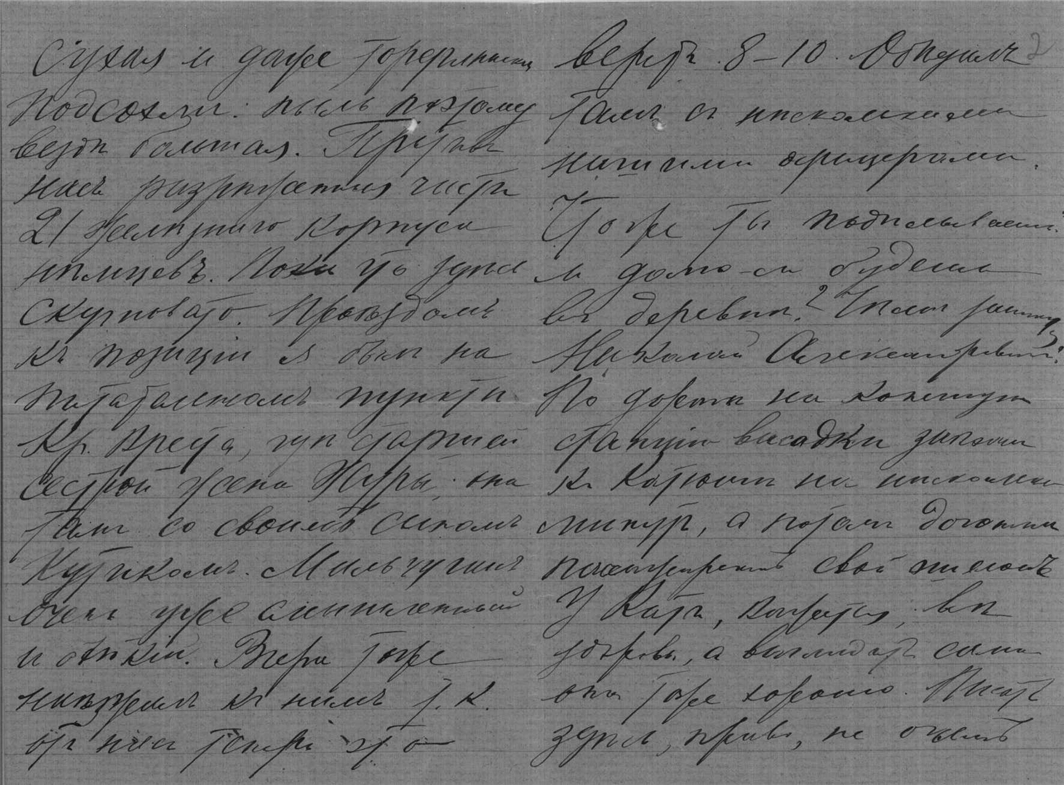 сухая и даже торфянистая
подсохли: пыль поэтому
везде большая. Противъ
насъ разрѣженныя части
21 резервнаго корпуса
нѣмцевъ. Пока что здѣсь
скучновато. Проѣздомъ
къ позиціи я былъ на
питательномъ пунктѣ
Кр. Креста, гдѣ старшей
сестрой жена Журы; она
тамъ со своимъ сыномъ
Кутикомъ. Мальчуганъ
очень уже смышленный
и бойкій. Вчера тоже
наѣзжалъ къ нимъ т. к.
отъ насъ теперь это
верстъ 8–10. Обѣдалъ
тамъ съ нѣсколькими
нашими офицерами.
Что же ты подѣлываешь
и долго-ли будешь
въ деревнѣ? Какъ
Николай Александровичъ?
По дорогѣ на конечную
станцію высадки заѣхалъ
къ Катюшѣ на нѣсколько
минутъ, а потомъ догонялъ
пассажирскимъ свой эшелонъ
У Кати, кажется, всѣ
здоровы, а выглядитъ сама
она тоже хорошо. Писать
здѣсь, право, не очень
2